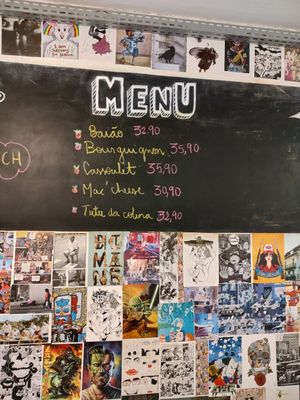 MENU
Baião 32,90
Bourguignon 35,90
Cassoulet 35,90
Mac'cheese 30,90
Tutu da colina 32,90
CH